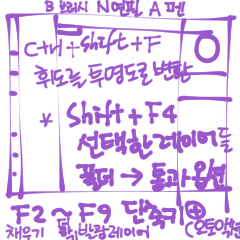 B 브러시 N 연필 A 펜
Ctrl+Shift+F
휘도를 투명도로 변환
* Shift+F4
선택한 레이어들
폴더 → 통과 옵션
F2 ~ F9 단축키
채우기 빨랑레이어 (오토액션